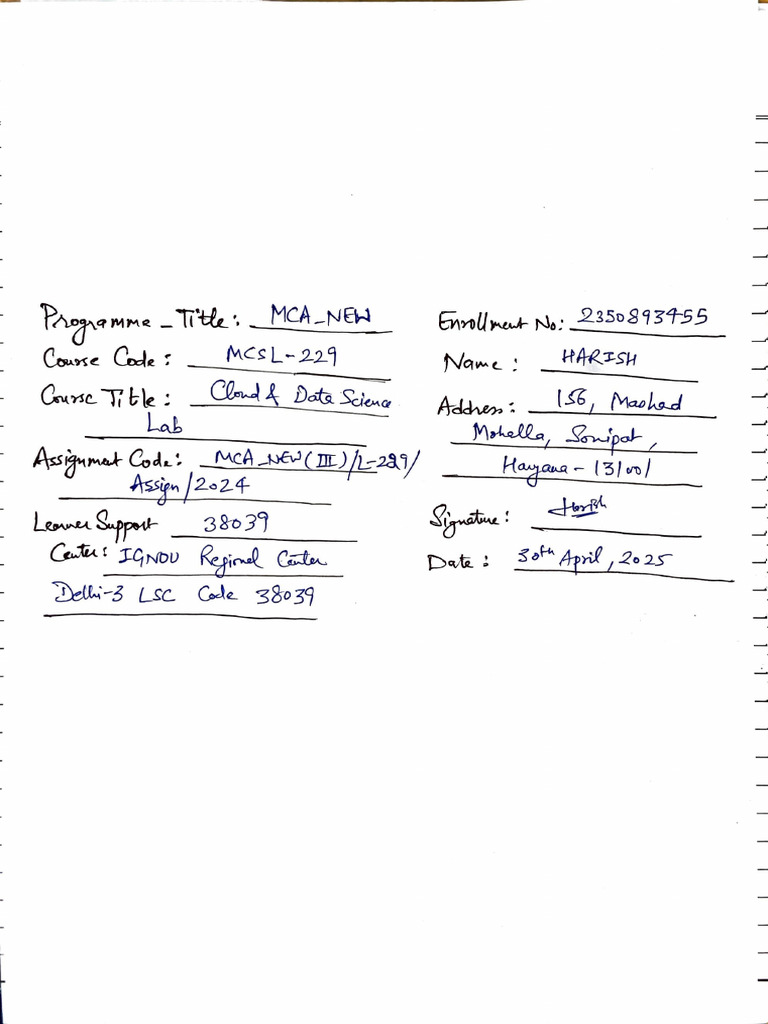 Programme_Title: MCA_NEW
Course Code: MCSL-229
Course Title: Cloud & Data Science
Lab
Assignment Code: MCA_NEW(III)/L-229/
Assign/2024
Learner Support 38039
Center: IGNOU Regional Center
Delhi-3 LSC Code 38039
Enrollment No: 2350893455
Name: HARISH
Address: 156, Mashad
Mohella, Sonipat,
Haryana - 131001
Signature: Harish
Date: 30th April, 2025